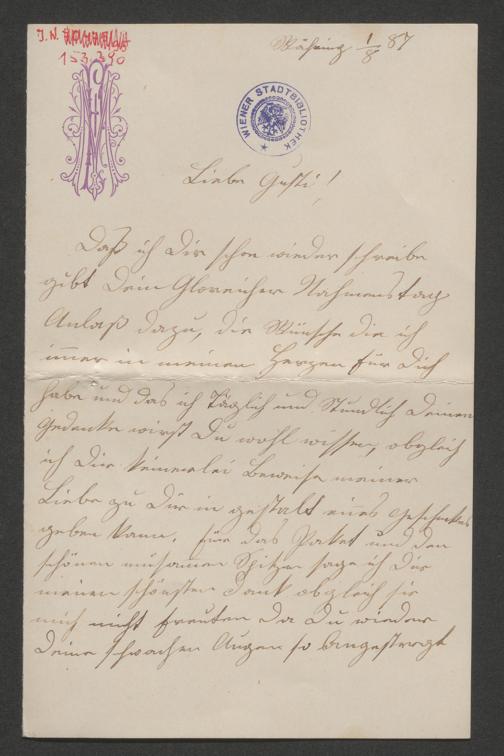 J. N.
153.390
Währing 1/8 87
WIENER STADTBIBLIOTHEK
Liebe Gusti!
Daß ich Dir schon wieder schreibe
gibt Dein Glorreicher Nahmenstag
Anlaß dazu, die Wünsche die ich
immer in meinem Herzen für Dich
habe und das ich Täglich und Stündlich Deiner
Gedenke wirst Du wohl wissen, obgleich
ich Dir keinerlei Beweise meiner
Liebe zu Dir in gestalt eines Geschenkes
geben kann. für das Paket und den
schönen mühsamen Spitzen sage ich Dir
meinen schönsten Dank obgleich sie
mich nicht freuten da Du wieder
Deine schwachen Augen so Angestrengt